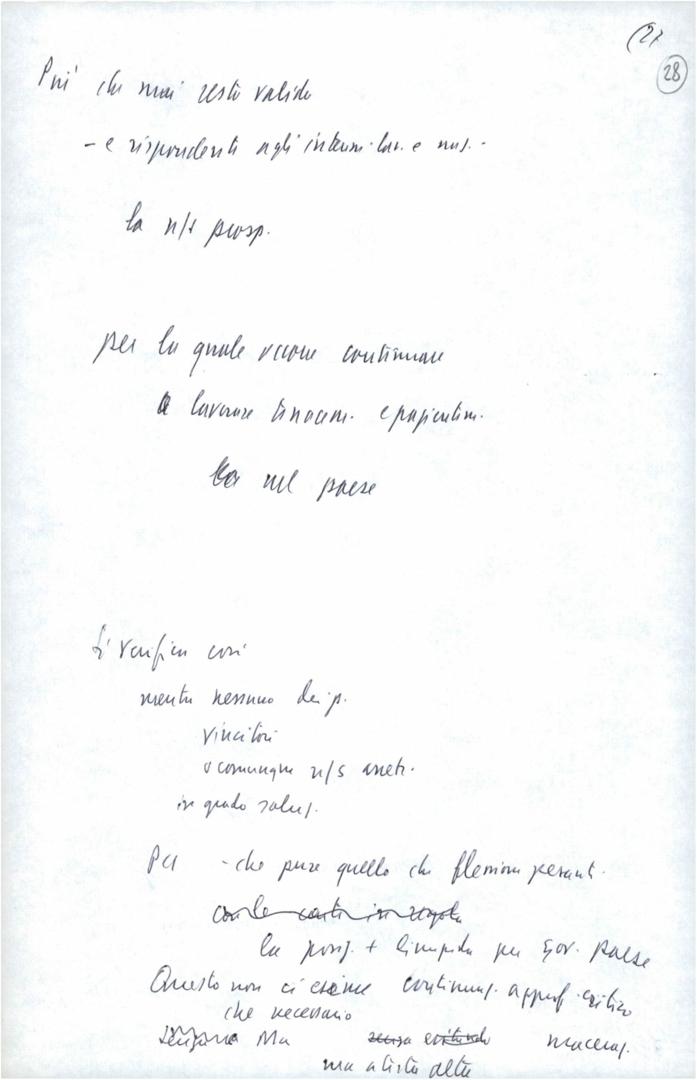 (27
28
Più che mai resta valida
- e rispondente agli interessi lav. e naz. -
la n/s prosp.
per la quale occorre continuare
a lavorare tenacem. e pazientem.
nel paese
Si verifica così
mentre nessuno dei p.
vincitori
o comunque n/s arretr.
in grado soluz.
PCI - che pure quello che flessioni pesanti -
con le carte in regola
la posiz. + limpida per gov. paese
Questo non ci esime continuaz. approf. critico
che necessario
Ma senza evitando maceraz.
ma